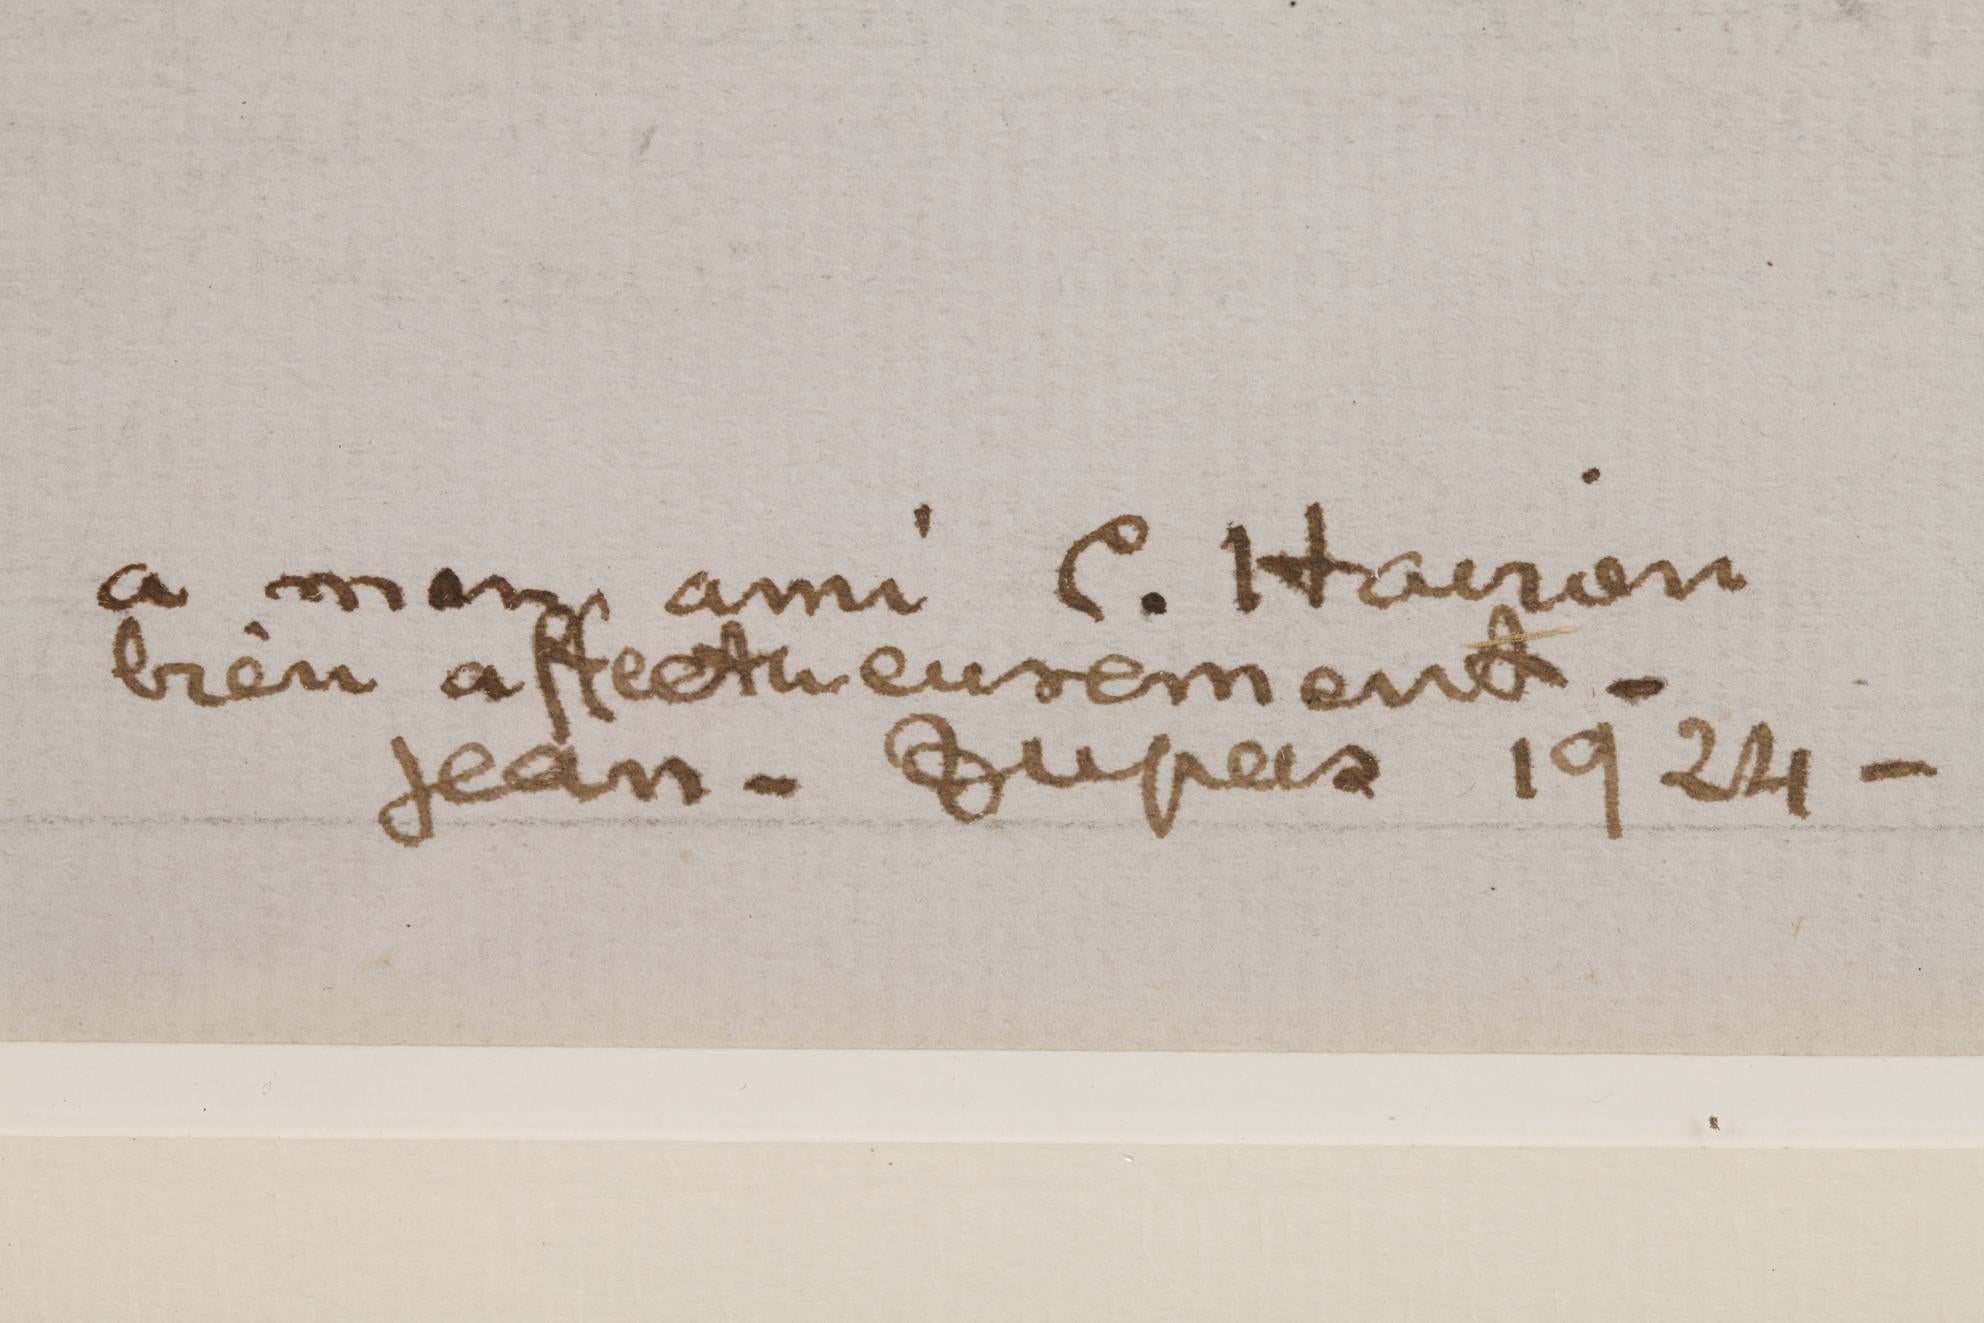 a mon ami C. Hairon
bien affectueusement -
Jean - Dupas 1924 -